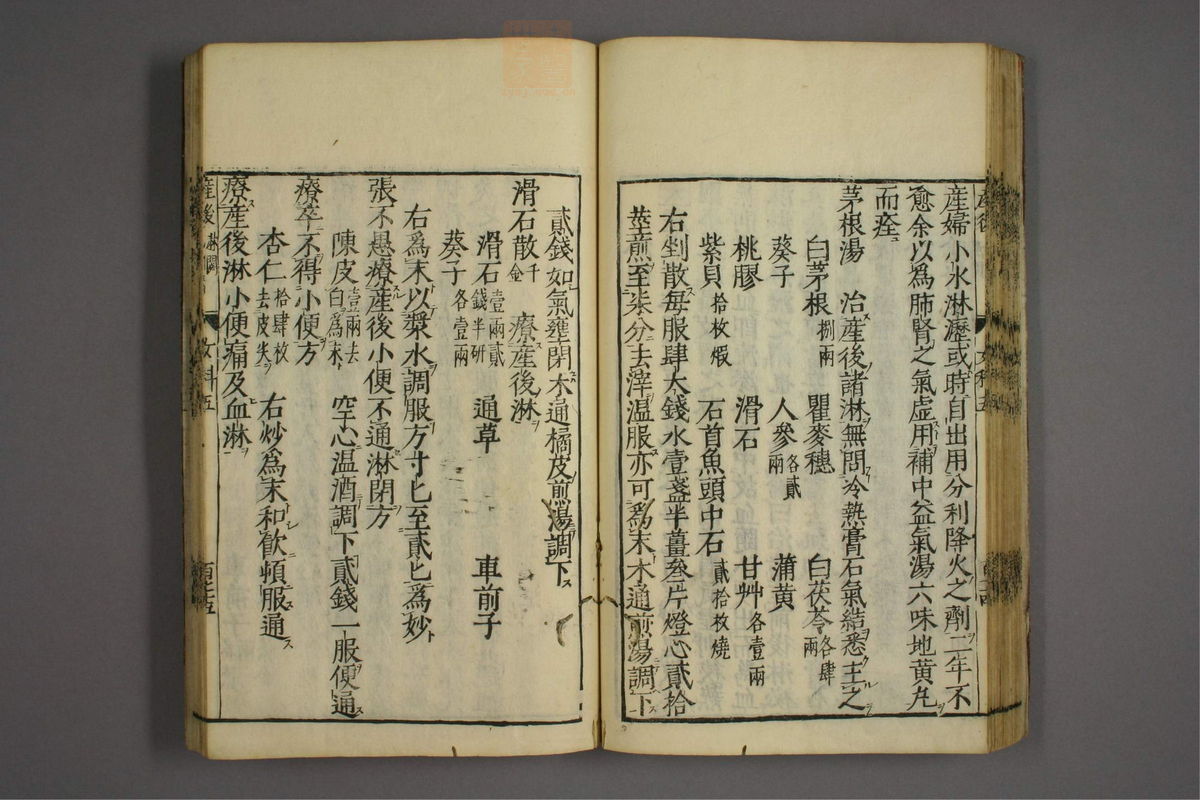 産婦小水淋瀝或時自出用分利降火之劑二年不
愈余以爲肺腎之氣虚用補中益氣湯六味地黄丸
而痊
茅根湯　治産後諸淋無問冷熱膏石氣結悉主之
白茅根捌兩　瞿麥穗　白茯苓各肆兩
葵子　人參各貳兩　蒲黄
桃膠　滑石　甘艸各壹兩
紫貝拾枚煅　石首魚頭中石貳拾枚燒
右剉散毎服肆大錢水壹盞半薑叁片燈心貳拾
莖煎至柒分去滓温服亦可爲末木通煎湯調下
貳錢如氣壅閉木通橘皮煎湯調下
滑石散千金　療産後淋
滑石壹兩貳錢半研　通草　車前子
葵子各壹兩
右爲末以漿水調服方寸匕至貳匕爲妙
張不愚療産後小便不通淋閉方
陳皮壹兩去白爲末　空心温酒調下貳錢一服便通
療卒不得小便方
杏仁拾肆枚去皮尖　右炒爲末和飮頓服通
療産後淋小便痛及血淋
産後淋
女科五
百七十五